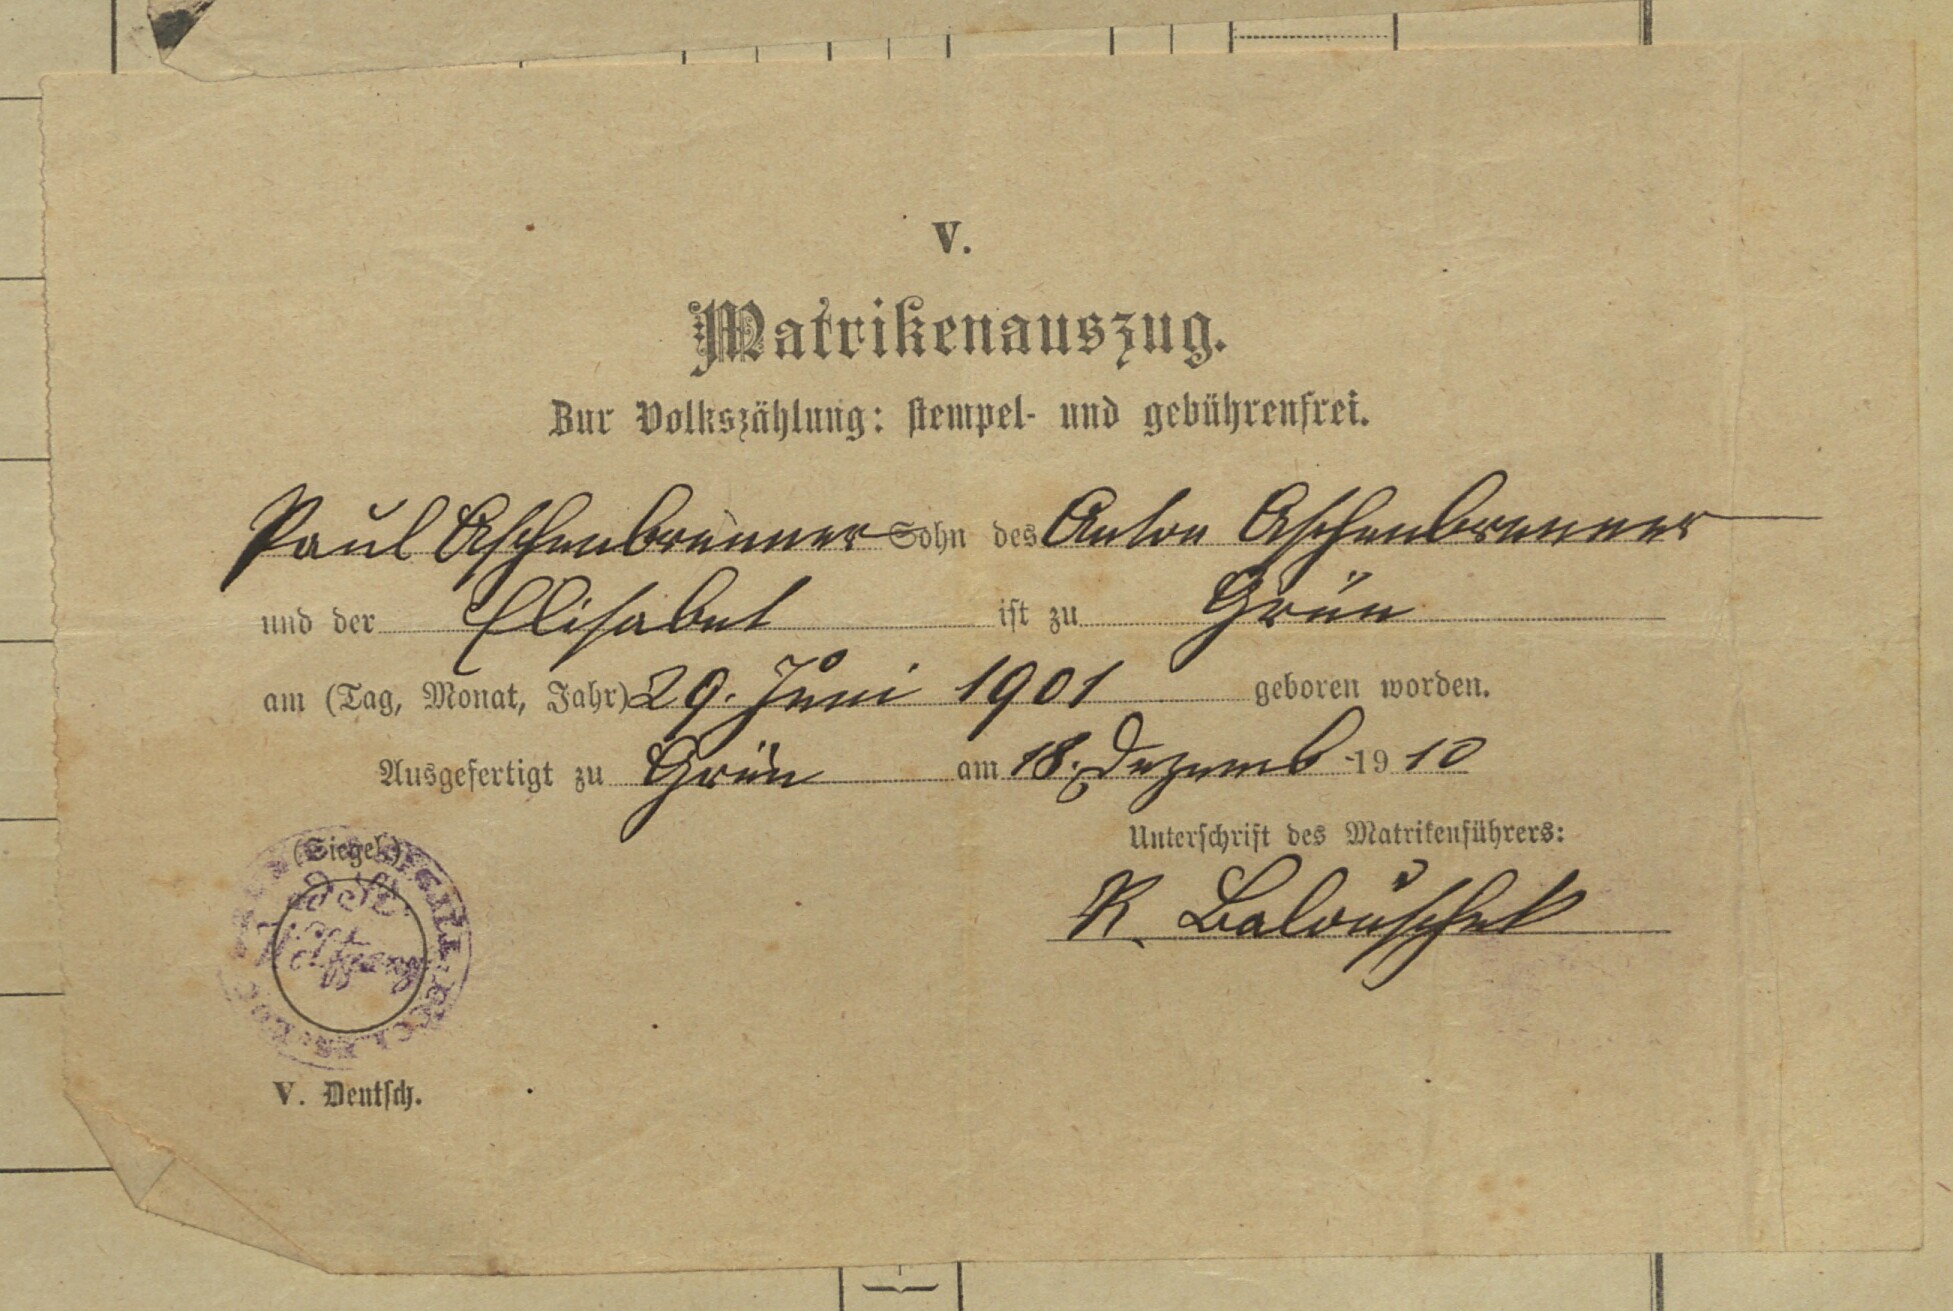 V.
Matrikenauszug.
Zur Volkszählung: stempel- und gebührenfrei.
Paul Aschenbrenner Sohn des Anton Aschenbrenner
und der Elisabet ist zu Grün
am (Tag, Monat, Jahr) 29. Juni 1901 geboren worden.
Ausgefertigt zu Grün am 18. Dezemb 1910
(Siegel.)
Unterschrift des Matrikenführers:
R. Balouschek
Wolfgang
V. Deutsch.